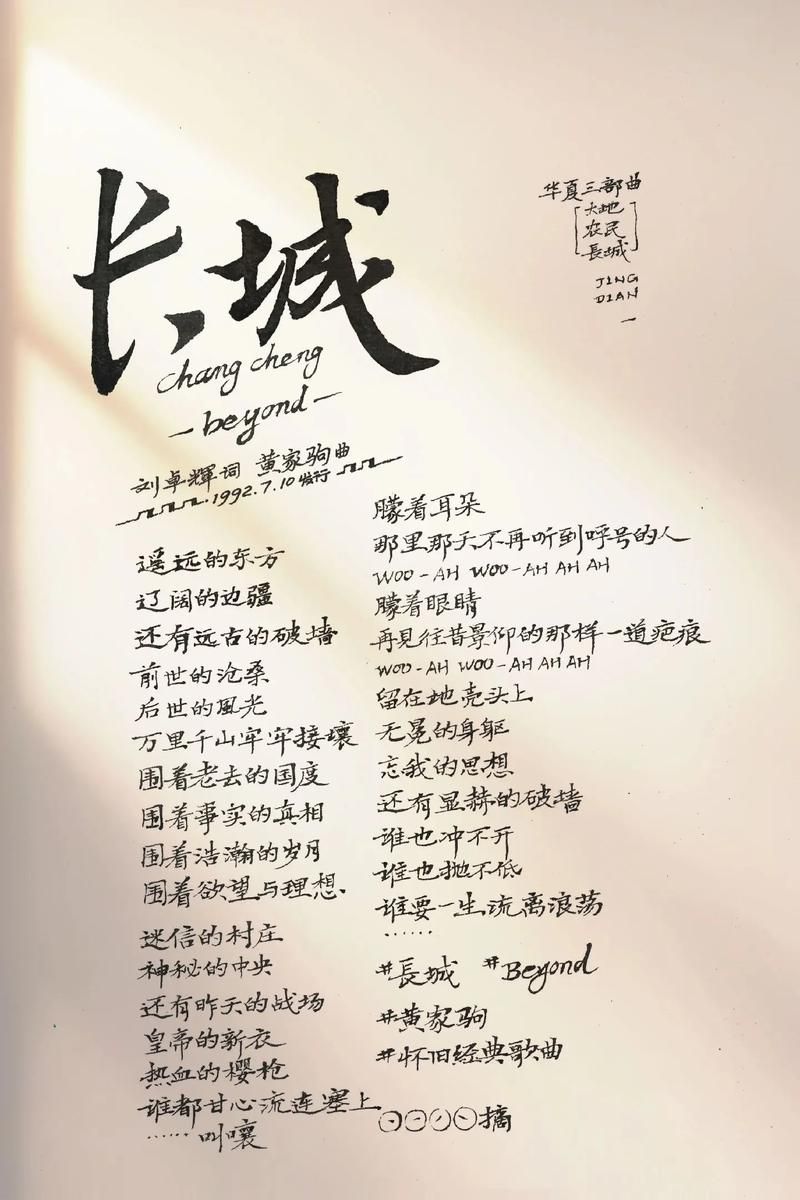 长城
chang cheng
-beyond-
刘卓輝词 黄家驹曲
1992.7.10发行
华夏三部曲
大地
农民
長城
JING
DIAN
遥远的东方
辽阔的边疆
还有远古的破墙
前世的沧桑
后世的風光
万里千山牢牢接壤
围着老去的国度
围着事实的真相
围着浩瀚的岁月
围着欲望与理想.
迷信的村庄
神秘的中央
还有昨天的战场
皇帝的新衣
热血的樱枪
谁都甘心流连塞上
……叫嚷
朦着耳朵
那里那天不再听到呼号的人
WOO-AH WOO-AH AH AH
朦着眼睛
再見往昔景仰的那样一道疤痕
WOO-AH WOO-AH AH AH
留在地壳头上
无冕的身躯
忘我的思想
还有显赫的破墙
谁也冲不开
谁也抛不低
谁要一生流离浪荡
……
#長城 #Beyond
#黄家驹
#怀旧经典歌曲
摘